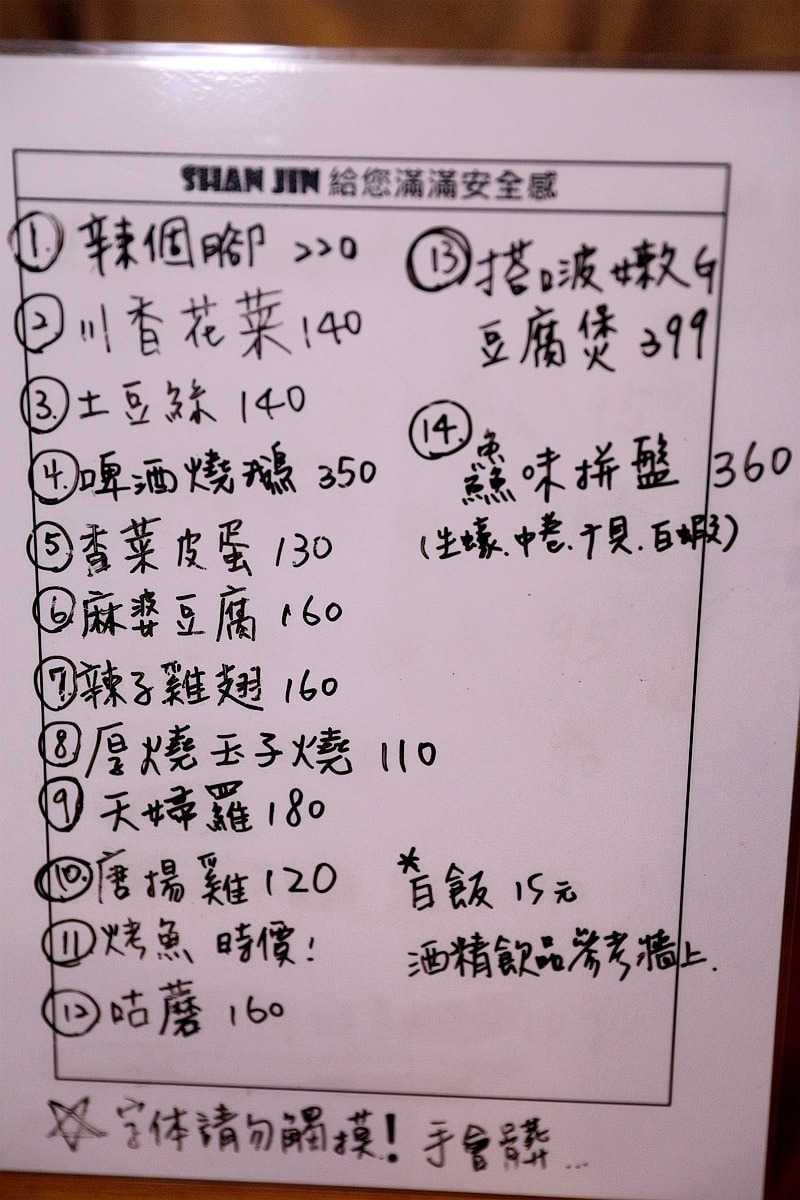 SHAN JIN 給您滿滿安全感
1. 辣個腳 220
2 川香花菜 140
3. 土豆絲 140
4. 啤酒燒鵝 350
5 香菜皮蛋 130
6 麻婆豆腐 160
7. 辣子雞翅 160
8 厚燒玉子燒 110
9 天婦羅 180
10. 唐揚雞 120
11 烤魚 時價!
12 咕蘑 160
13 搭啵嫩G
豆腐煲 399
14. 鱻味拼盤 360
(生蠔.中卷.干貝.白蝦)
*白飯 15元
酒精飲品參考牆上.
☆ 字体請勿觸摸! 手會髒...